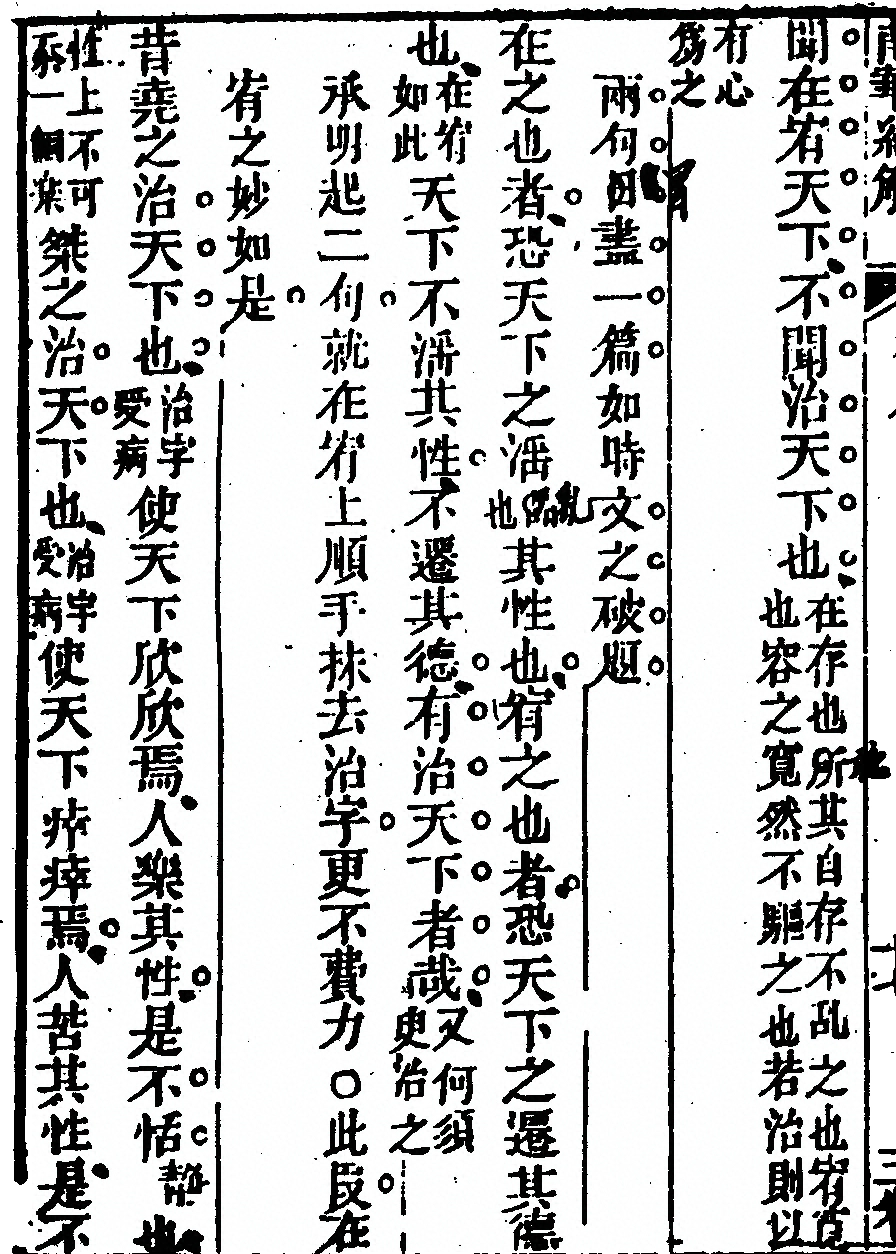 聞在宥天下不聞治天下也在存也所其自存不乱之也宥
也容之寬然不驅之也若治則以
有心
為之
兩句盡一篇如時文之破題
在之也者恐天下之淫乱也其性也宥之也者恐天下之遷其德
也在宥如此天下不淫其性不遷其德有治天下者哉又何須更治之
承明起二句就在宥上順手抹去治字更不費力○此段在
宥之妙如是
昔堯之治天下也治字受病使天下欣欣焉人樂其性是不恬靜也
性上不可
桀之治天下也治字受病使天下瘁瘁焉人苦其性是不